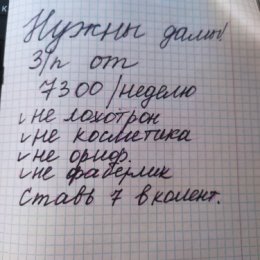 Нужны дамы!
З/п от
7300/неделю
✓не лохотрон
✓не косметика
✓не ориф.
✓не фаберлик
Ставь 7 в комент.